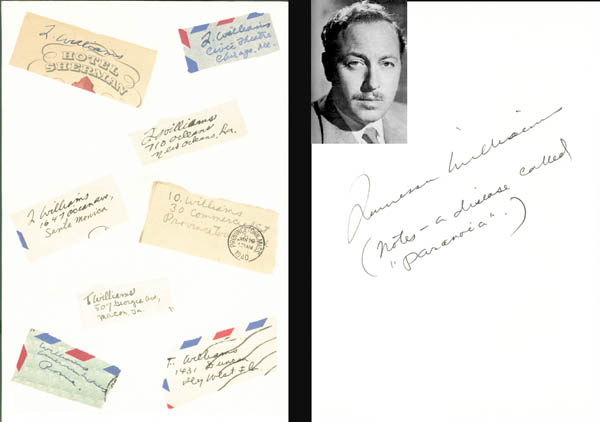 T. Williams
HOTEL
SHERMAN
T. Williams
Civic Theatre
Chicago, Ill.
T. Williams
710 Orleans
New Orleans, La.
T. Williams
1647 Ocean Ave,
Santa Monica
10. Williams
30 Commercial St
Provincetown
1940
T Williams
507 Georgia Ave,
Macon, Ga.
Williams
Rome.
T. Williams
1431 Duncan
Key West Fla.
Tennessee Williams
(Notes - a disease called
"Paranoia".)